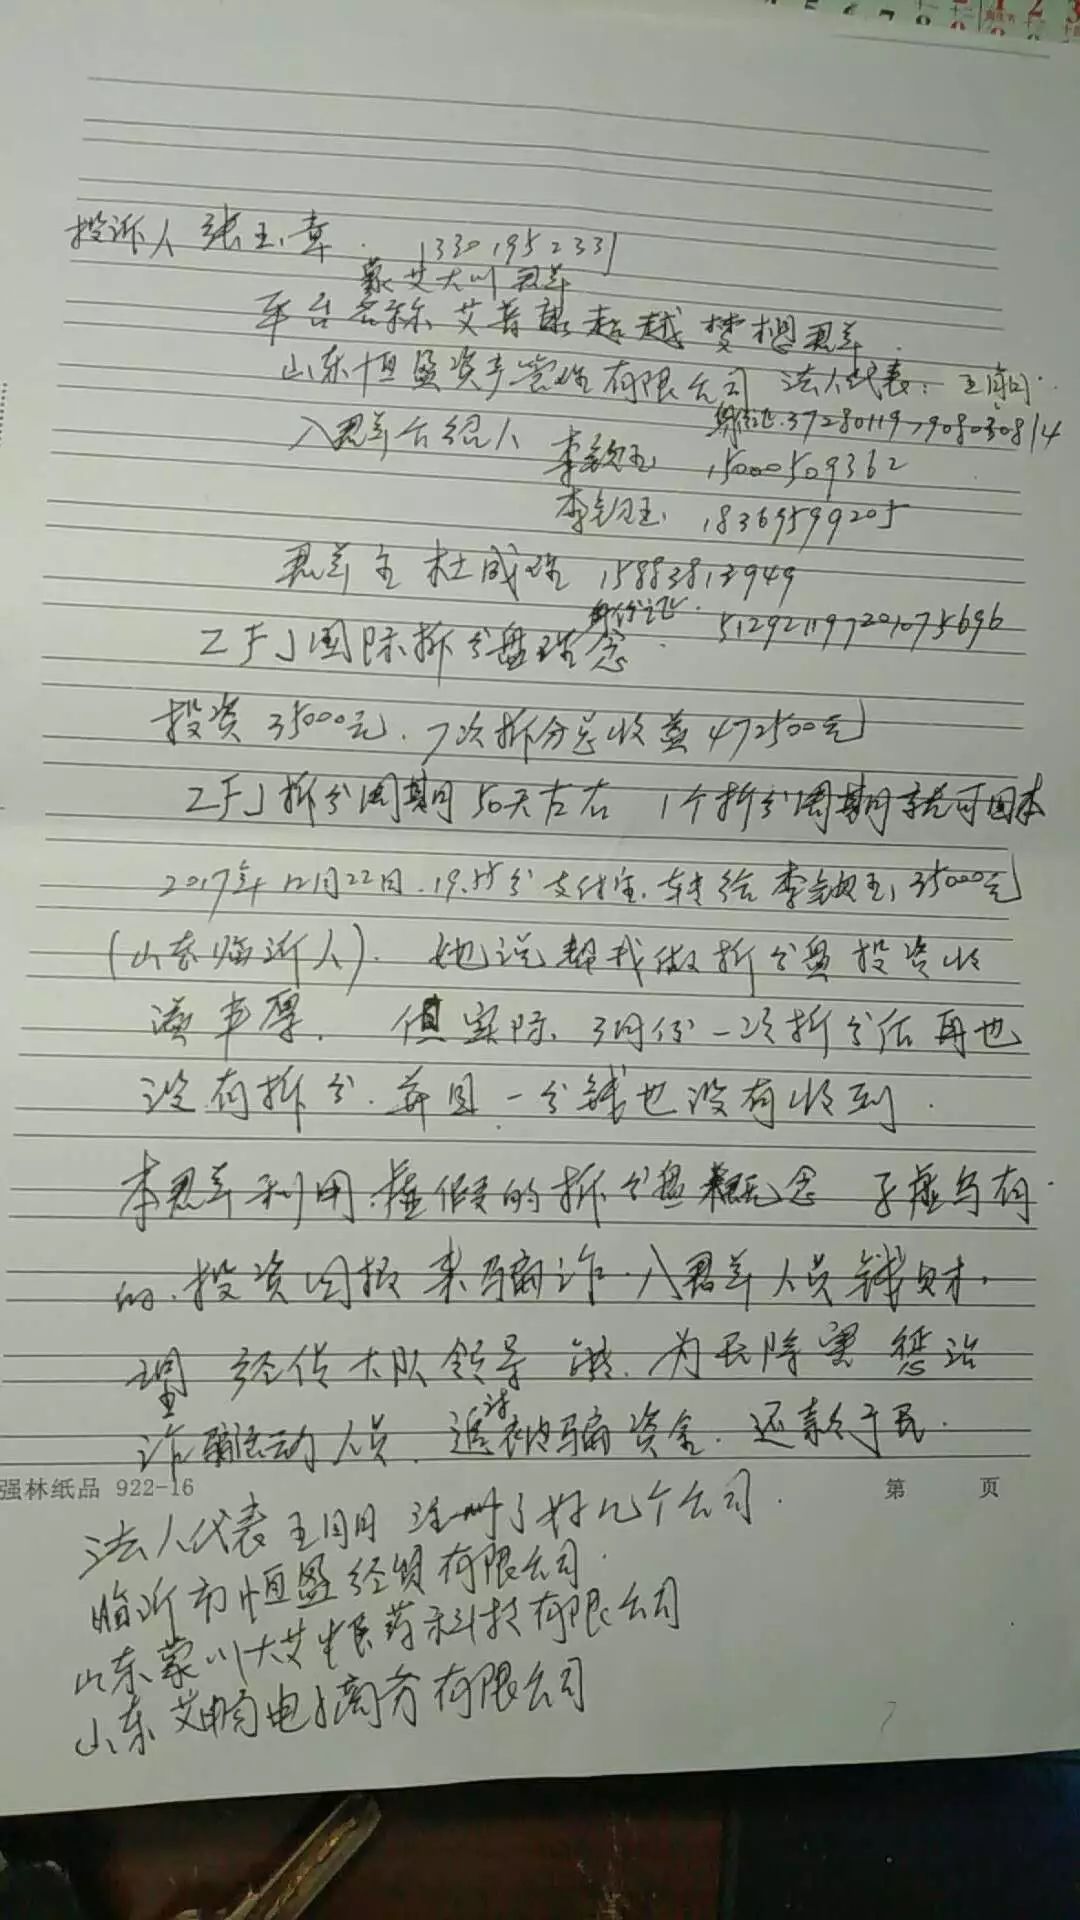 投诉人 张玉章 13301952331
蒙艾大川君羊
平台名称 艾普康超越梦想君羊
山东恒盈资产管理有限公司 法人代表: 王
身份证.372801197908030814
入君羊介绍人 李钦玉 15000509362
李钦玉 18369599205
君羊主 杜成 15883813949
身份证. 512921197201075696
ZFJ国际拆分盘理念
投资35000元.7次拆分总收益472500元
ZFJ拆分周期50天左右 1个拆分周期就可回本
2017年12月22日.19.55分支付宝.转给李钦玉35000元
(山东临沂人). 她说帮我做拆分盘投资收
益丰厚. 但实际.3月份一次拆分后再也
没有拆分.并且一分钱也没有收到.
本君羊利用虚假的拆分盘概念 子虚乌有
的.投资回报来骗诈.入君羊人员钱财.
望 经侦大队领导能.为民除害 惩治
诈骗活动人员.追讨被骗资金.还款于民.
强林纸品 922-16 第 页
法人代表王 注册了好几个公司.
临沂市恒盈经贸有限公司.
山东蒙川大艾生医药科技有限公司
山东艾畅电子商务有限公司